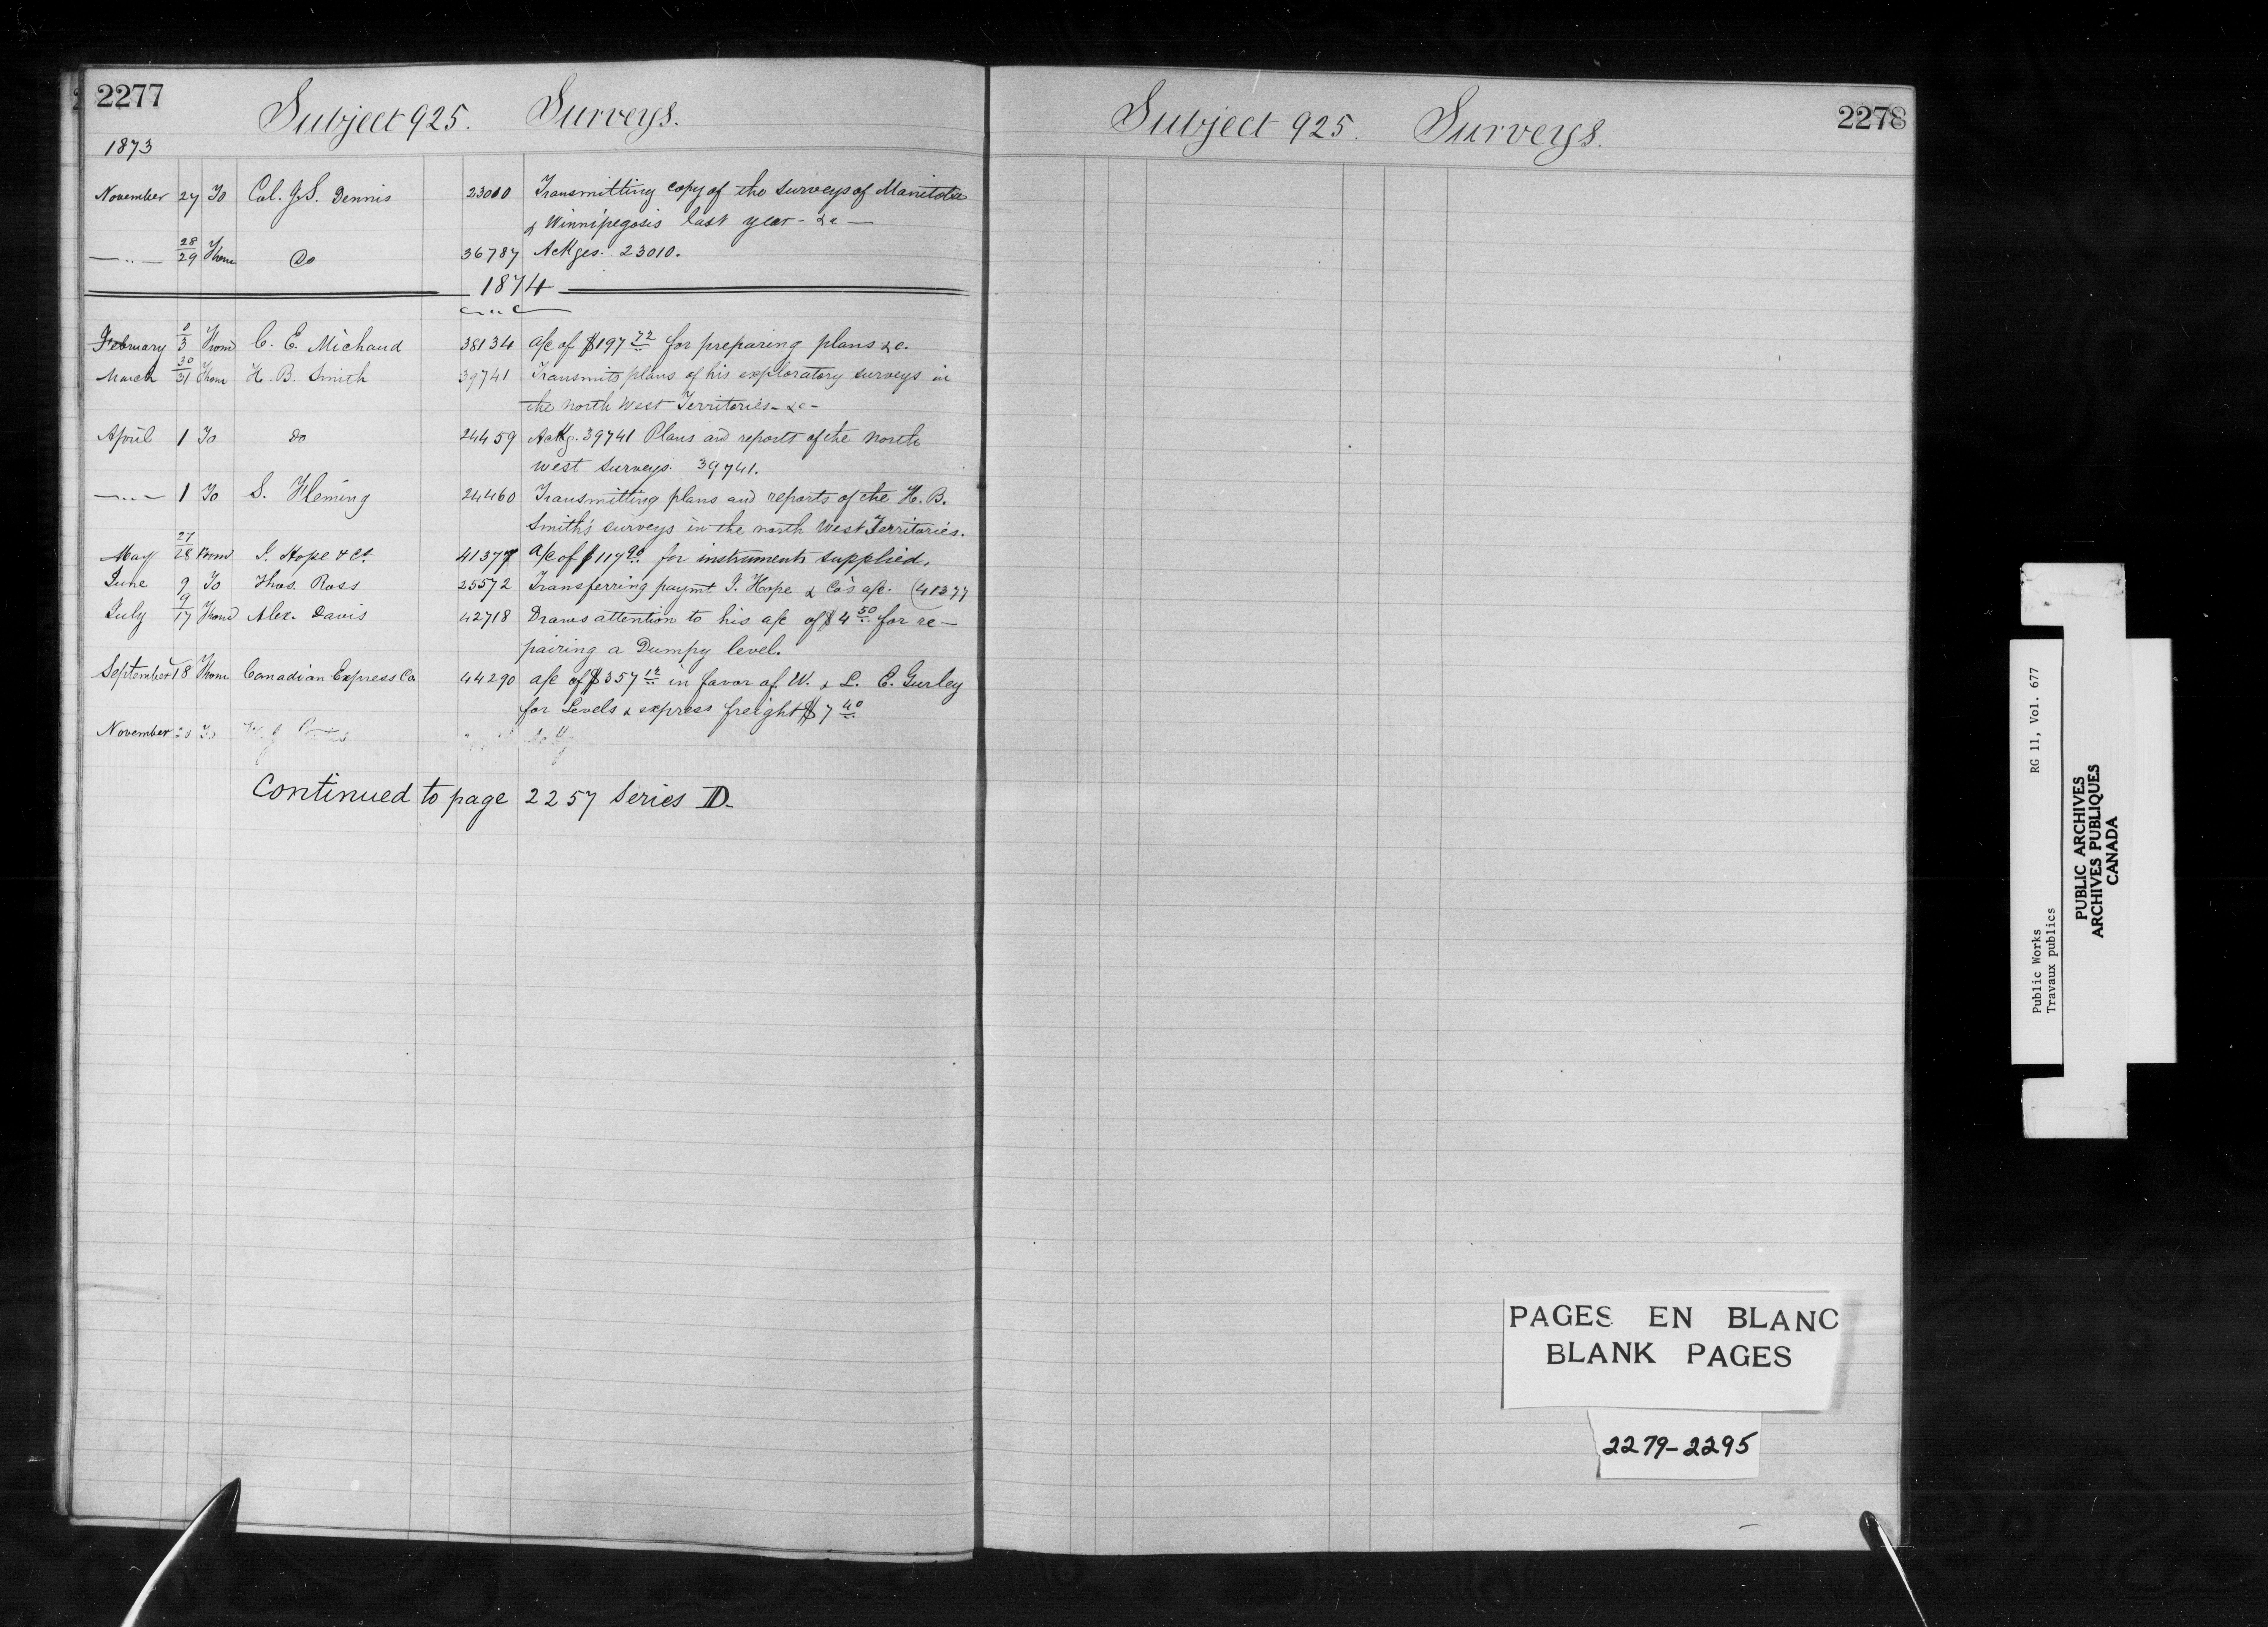 2277
Subject 925. Surveys.
1873
November 27 To Col. J.S. Dennis 23010 Transmitting copy of the surveys of Manitoba
& Winnipegosis last year - &c —
—..— 28/29 From Do 36787 Ackges. 23010.
1874
February 0/3 From C. E. Michaud 38134 a/c of $197 72 for preparing plans &c.
March 30/31 From H. B. Smith 39741 Transmits plans of his exploratory surveys in
the North West Territories - &c -
April 1 To do 24459 Ackg. 39741 Plans and reports of the North
West Surveys. 39741.
—..— 1 To S. Fleming 24460 Transmitting plans and reports of the H. B.
Smith's surveys in the north West Territories.
May 27/28 From J. Hope & Co. 41377 a/c of $117 90 for instruments supplied.
June 9 To Thos. Ross 25572 Transferring paymt J. Hope & Co's a/c. (41377
July 9/17 From Alex. Davis 42718 Draws attention to his a/c of $4 50 for re-
pairing a Dumpy level.
September 18 From Canadian Express Co 44290 a/c of $357 12 in favor of W. & L. E. Gurley
for Levels & express freight $7 40
November 20 To
Continued to page 2257 Series D.
Subject 925. Surveys.
2278
PAGES EN BLANC
BLANK PAGES
2279-2295
Public Works RG 11, Vol. 677
Travaux publics
PUBLIC ARCHIVES
ARCHIVES PUBLIQUES
CANADA